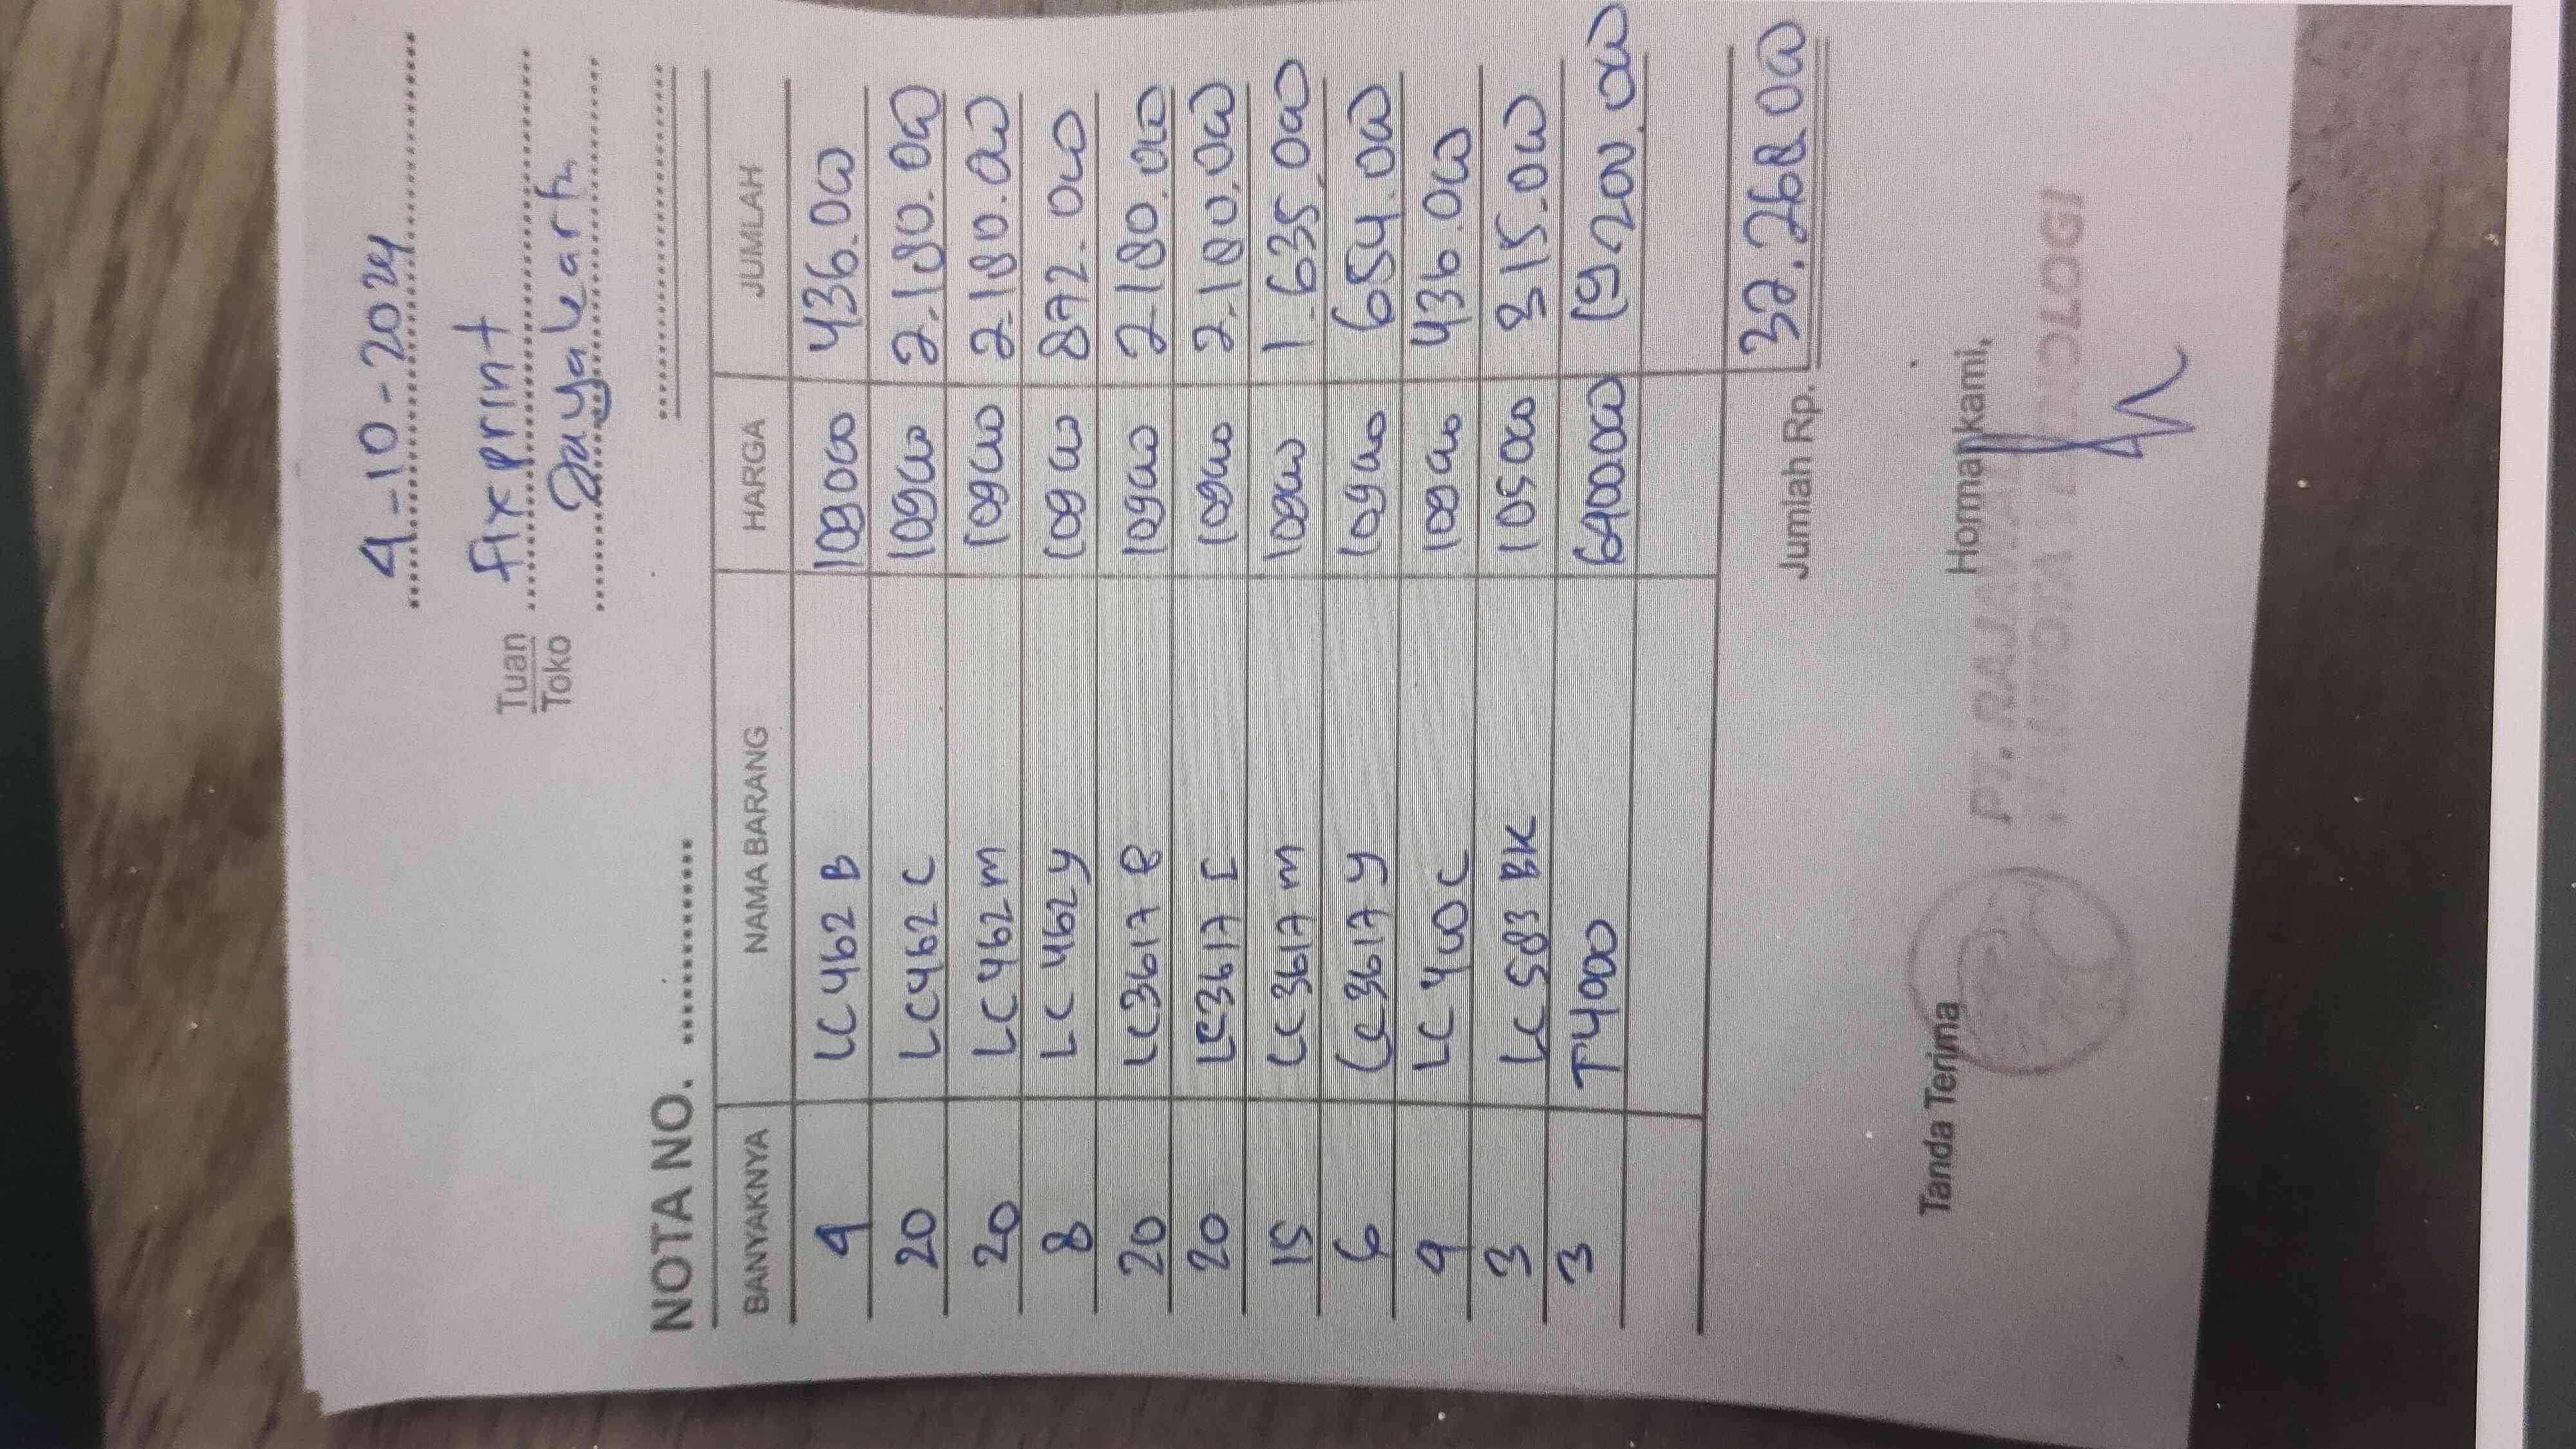 4-10-2024
Tuan fixprint
Toko Jayakarta
NOTA NO.
BANYAKNYA NAMA BARANG HARGA JUMLAH
4 LC 462 B 109000 436.000
20 LC462 C 109000 2.180.000
20 LC 462 M 109000 2.180.000
8 LC 462 Y 109000 872.000
20 LC3617 B 109000 2.180.000
20 LC3617 C 109000 2.180.000
15 LC 3617 M 109000 1.635.000
6 LC 3617 Y 109000 654.000
4 LC 400 C 109000 436.000
3 LC 583 BK 105000 315.000
3 T4000 6400000 19.200.000
Jumlah Rp. 32.268.000
Tanda Terima Hormat kami,
PT. RAJAWALI
TEKNOLOGI